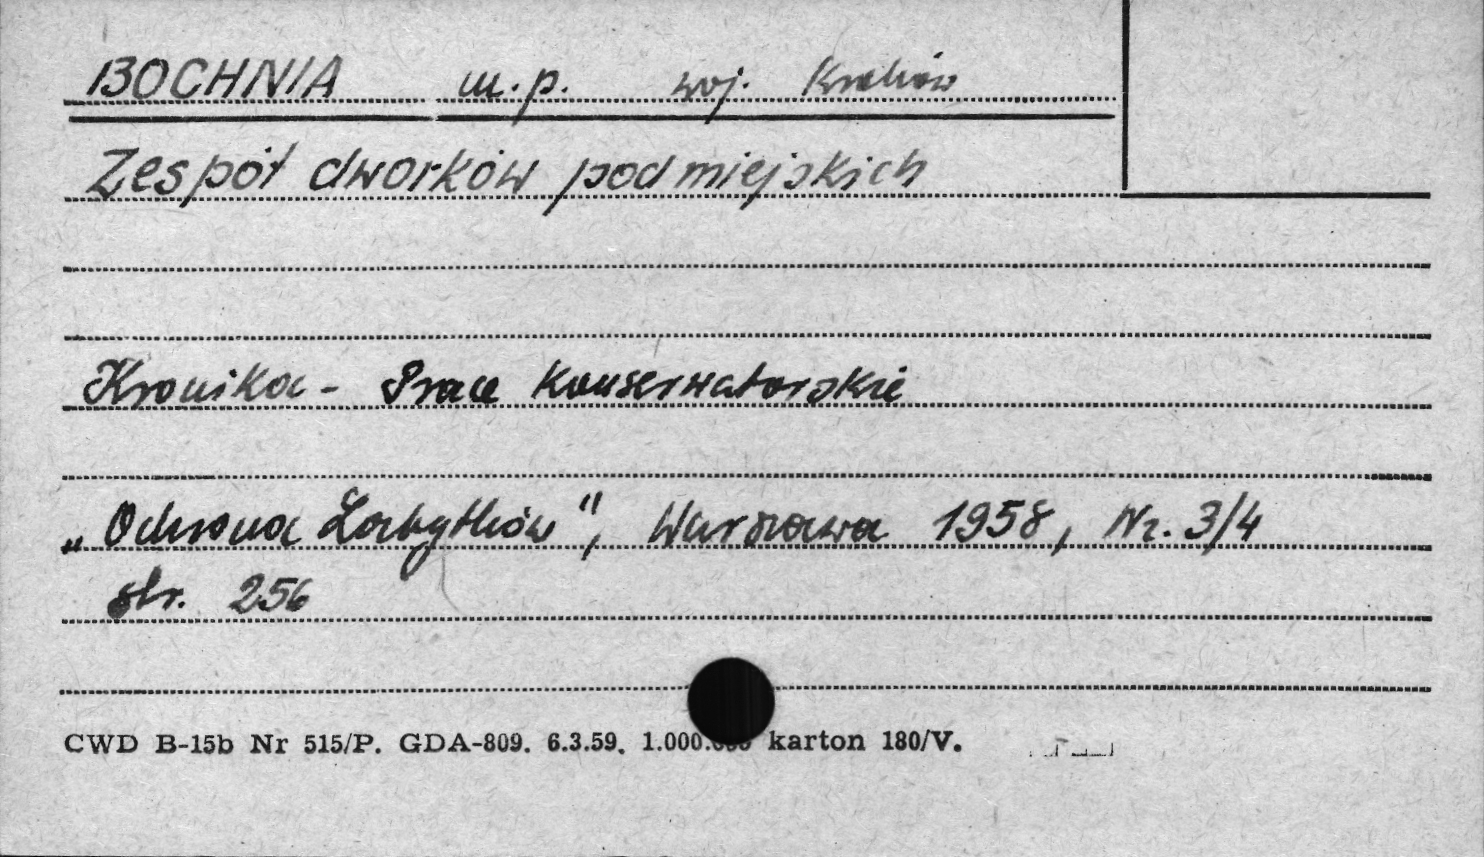 BOCHNIA m.p. woj. Kraków
Zespół dworków podmiejskich
Kronika - Prace Konserwatorskie
„Ochrona Zabytków", Warszawa 1958, Nr. 3/4
str. 256
CWD B-15b Nr 515/P. GDA-809. 6.3.59. 1.000.000 karton 180/V.